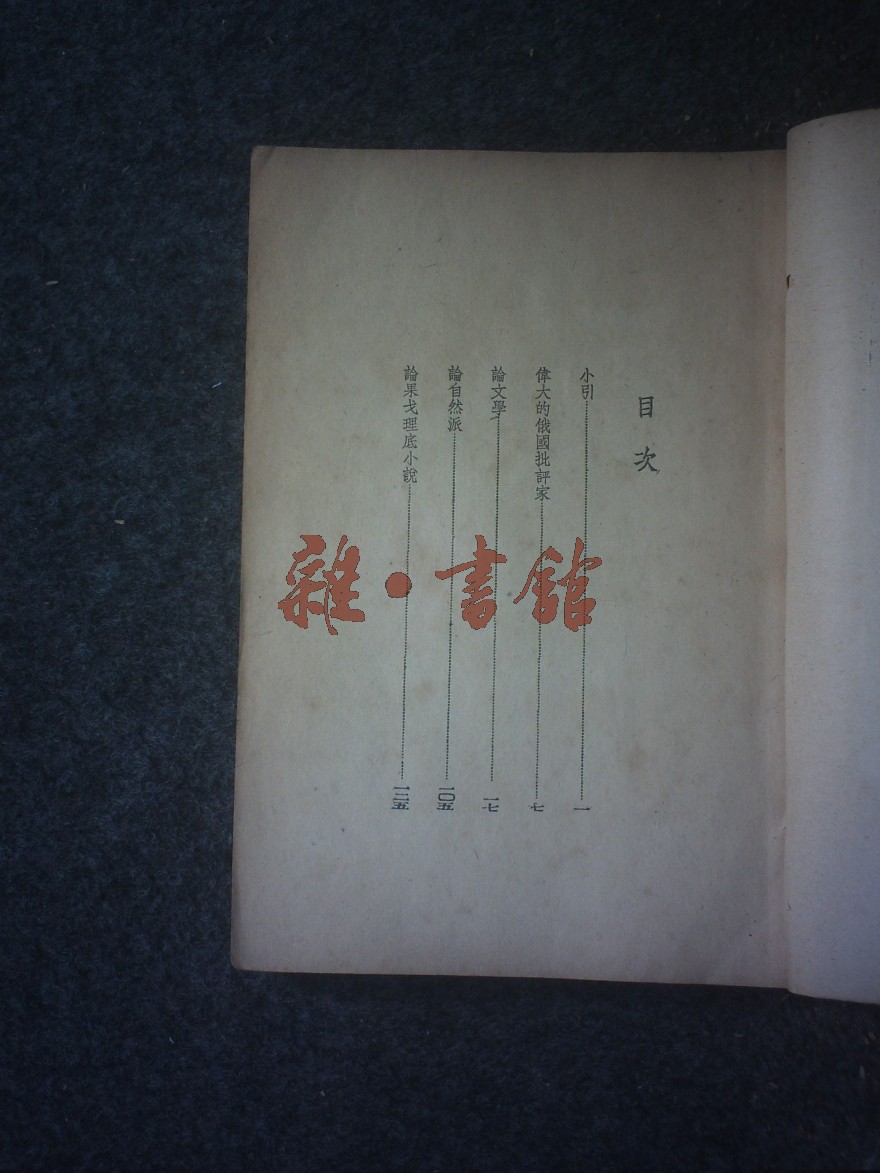 目次
小引……一
偉大的俄國批評家……七
論文學……一七
論自然派……一〇五
論果戈理底小說……一三五
雜·書館